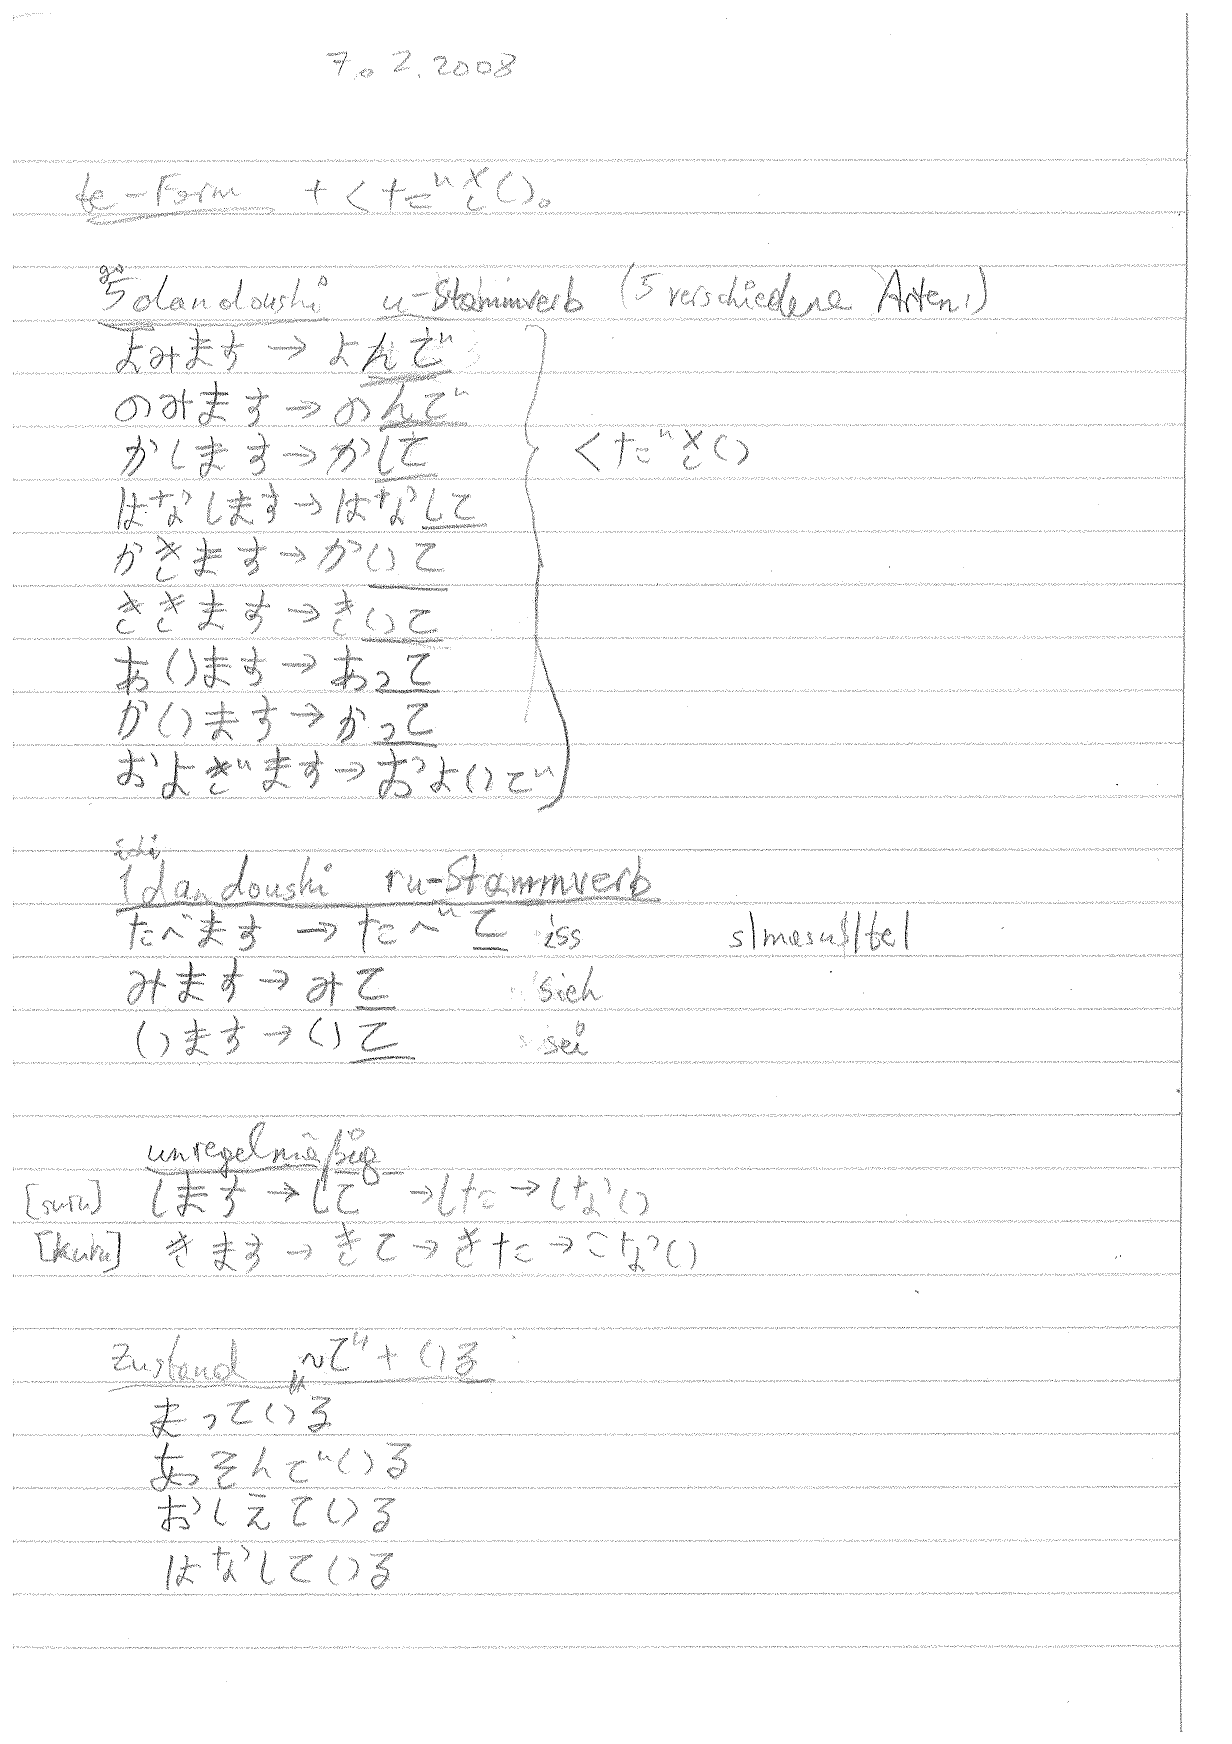 7.2.2008
te-Form + ください。
go
5dandoushi u-Stammverb (5 verschiedene Arten)
よみます → よんで
のみます → のんで
かします → かして
ください
はなします → はなして
かきます → かいて
ききます → きいて
あいます → あって
かいます → かって
およぎます → およいで
ichi
1dandoushi ru-Stammverb
たべます → たべて iss s/masu$/te/
みます → みて sieh
います → いて sei
unregelmäßig
[suru] します → して → した → しない
[kuru] きます → きて → きた → こない
Zustand ~て" + いる
まっている
あそんでいる
おしえている
はなしている